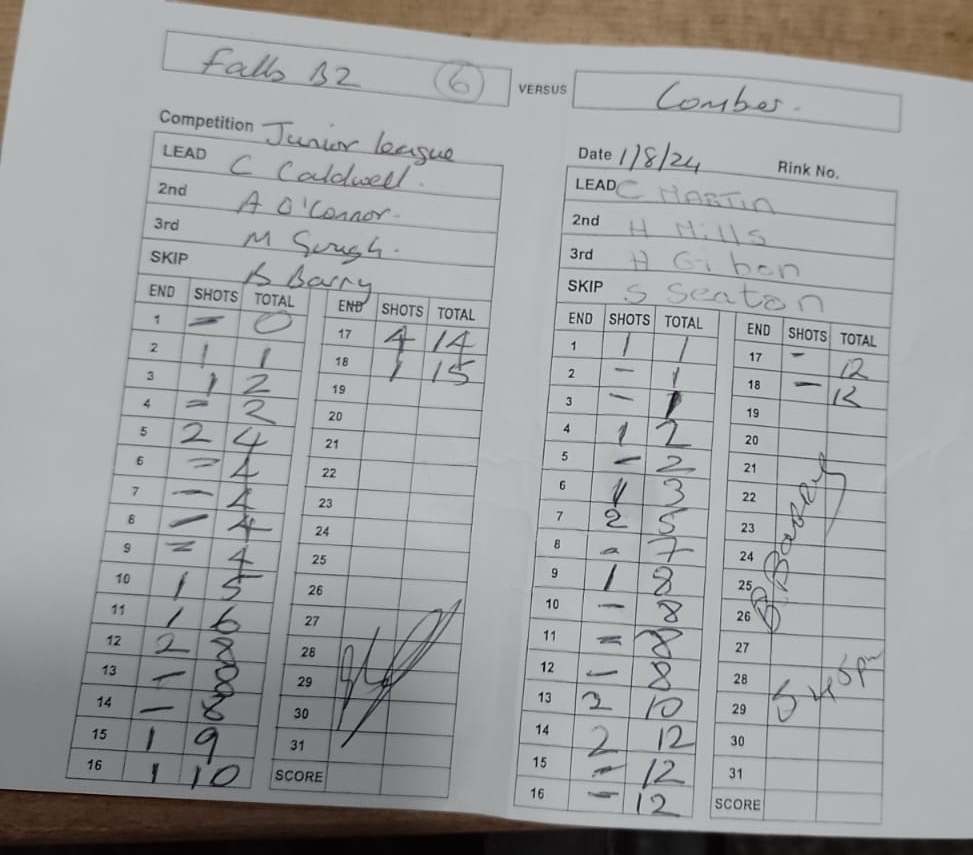 Falls B2 6 VERSUS Comber.
Competition Junior league
LEAD C Caldwell.
2nd A O'Connor.
3rd M
SKIP B Barry
END SHOTS TOTAL
1 – 0
2 1 1
3 1 2
4 – 2
5 2 4
6 – 4
7 – 4
8 – 4
9 – 4
10 1 5
11 1 6
12 2 8
13 – 8
14 – 8
15 1 9
16 1 10
END SHOTS TOTAL
17 4 14
18 1 15
19
20
21
22
23
24
25
26
27
28
29
30
31
SCORE
Date 1/8/24 Rink No.
LEAD C MARTIN
2nd H Mills
3rd H Gibon
SKIP S Seaton
END SHOTS TOTAL
1 1 1
2 – 1
3 – 1
4 1 2
5 – 2
6 1 3
7 2 5
8 - 7
9 1 8
10 – 8
11 – 8
12 – 8
13 2 10
14 2 12
15 – 12
16 – 12
END SHOTS TOTAL
17 - 12
18 – 12
19
20
21
22
23
24
25
26
27
28
29
30
31
SCORE
B Barry